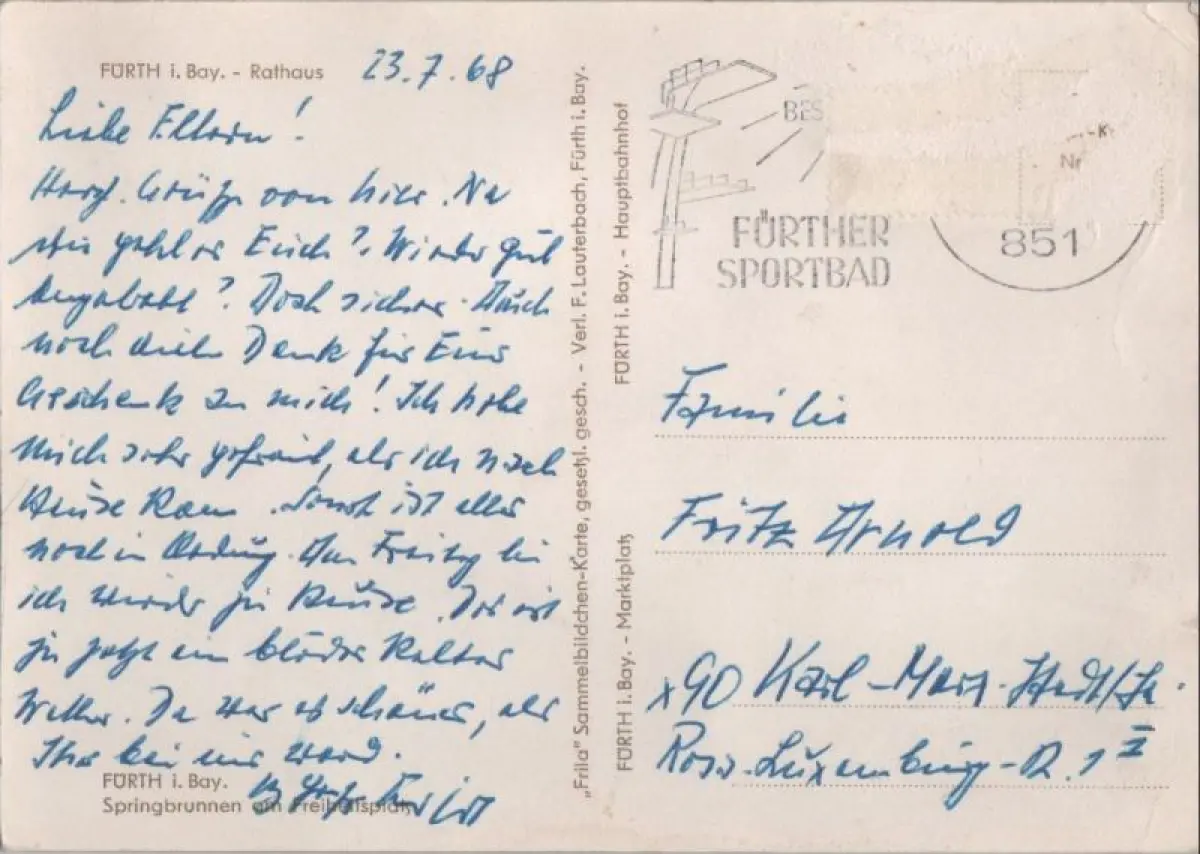 FÜRTH i. Bay. - Rathaus
23.7.68
Liebe Eltern!
Herzl. Grüße von hier. Na
wie geht es Euch? Wieder gut
angekommen? Doch sicher. Auch
noch vielen Dank für Euer
Geschenk an mich! Ich habe
mich sehr gefreut, als ich nach
Hause kam. Sonst ist alles
noch in Ordnung. Am Freitag bin
ich wieder zu Hause. Das ist
ja jetzt ein blödes kaltes
Wetter. Da war es schöner, als
Ihr bei uns ward.
FÜRTH i. Bay.
Springbrunnen am Freiheitsplatz
„Frila" Sammelbildchen-Karte, gesetzl. gesch. - Verl. F. Lauterbach, Fürth i. Bay.
FÜRTH i. Bay. - Hauptbahnhof
FÜRTH i. Bay. - Marktplatz
BES
FÜRTHER
SPORTBAD
-K
Nr
851
Familie
Fritz Arnold
x90 Karl-Marx-Stadt/Sa.
Rosa-Luxemburg-